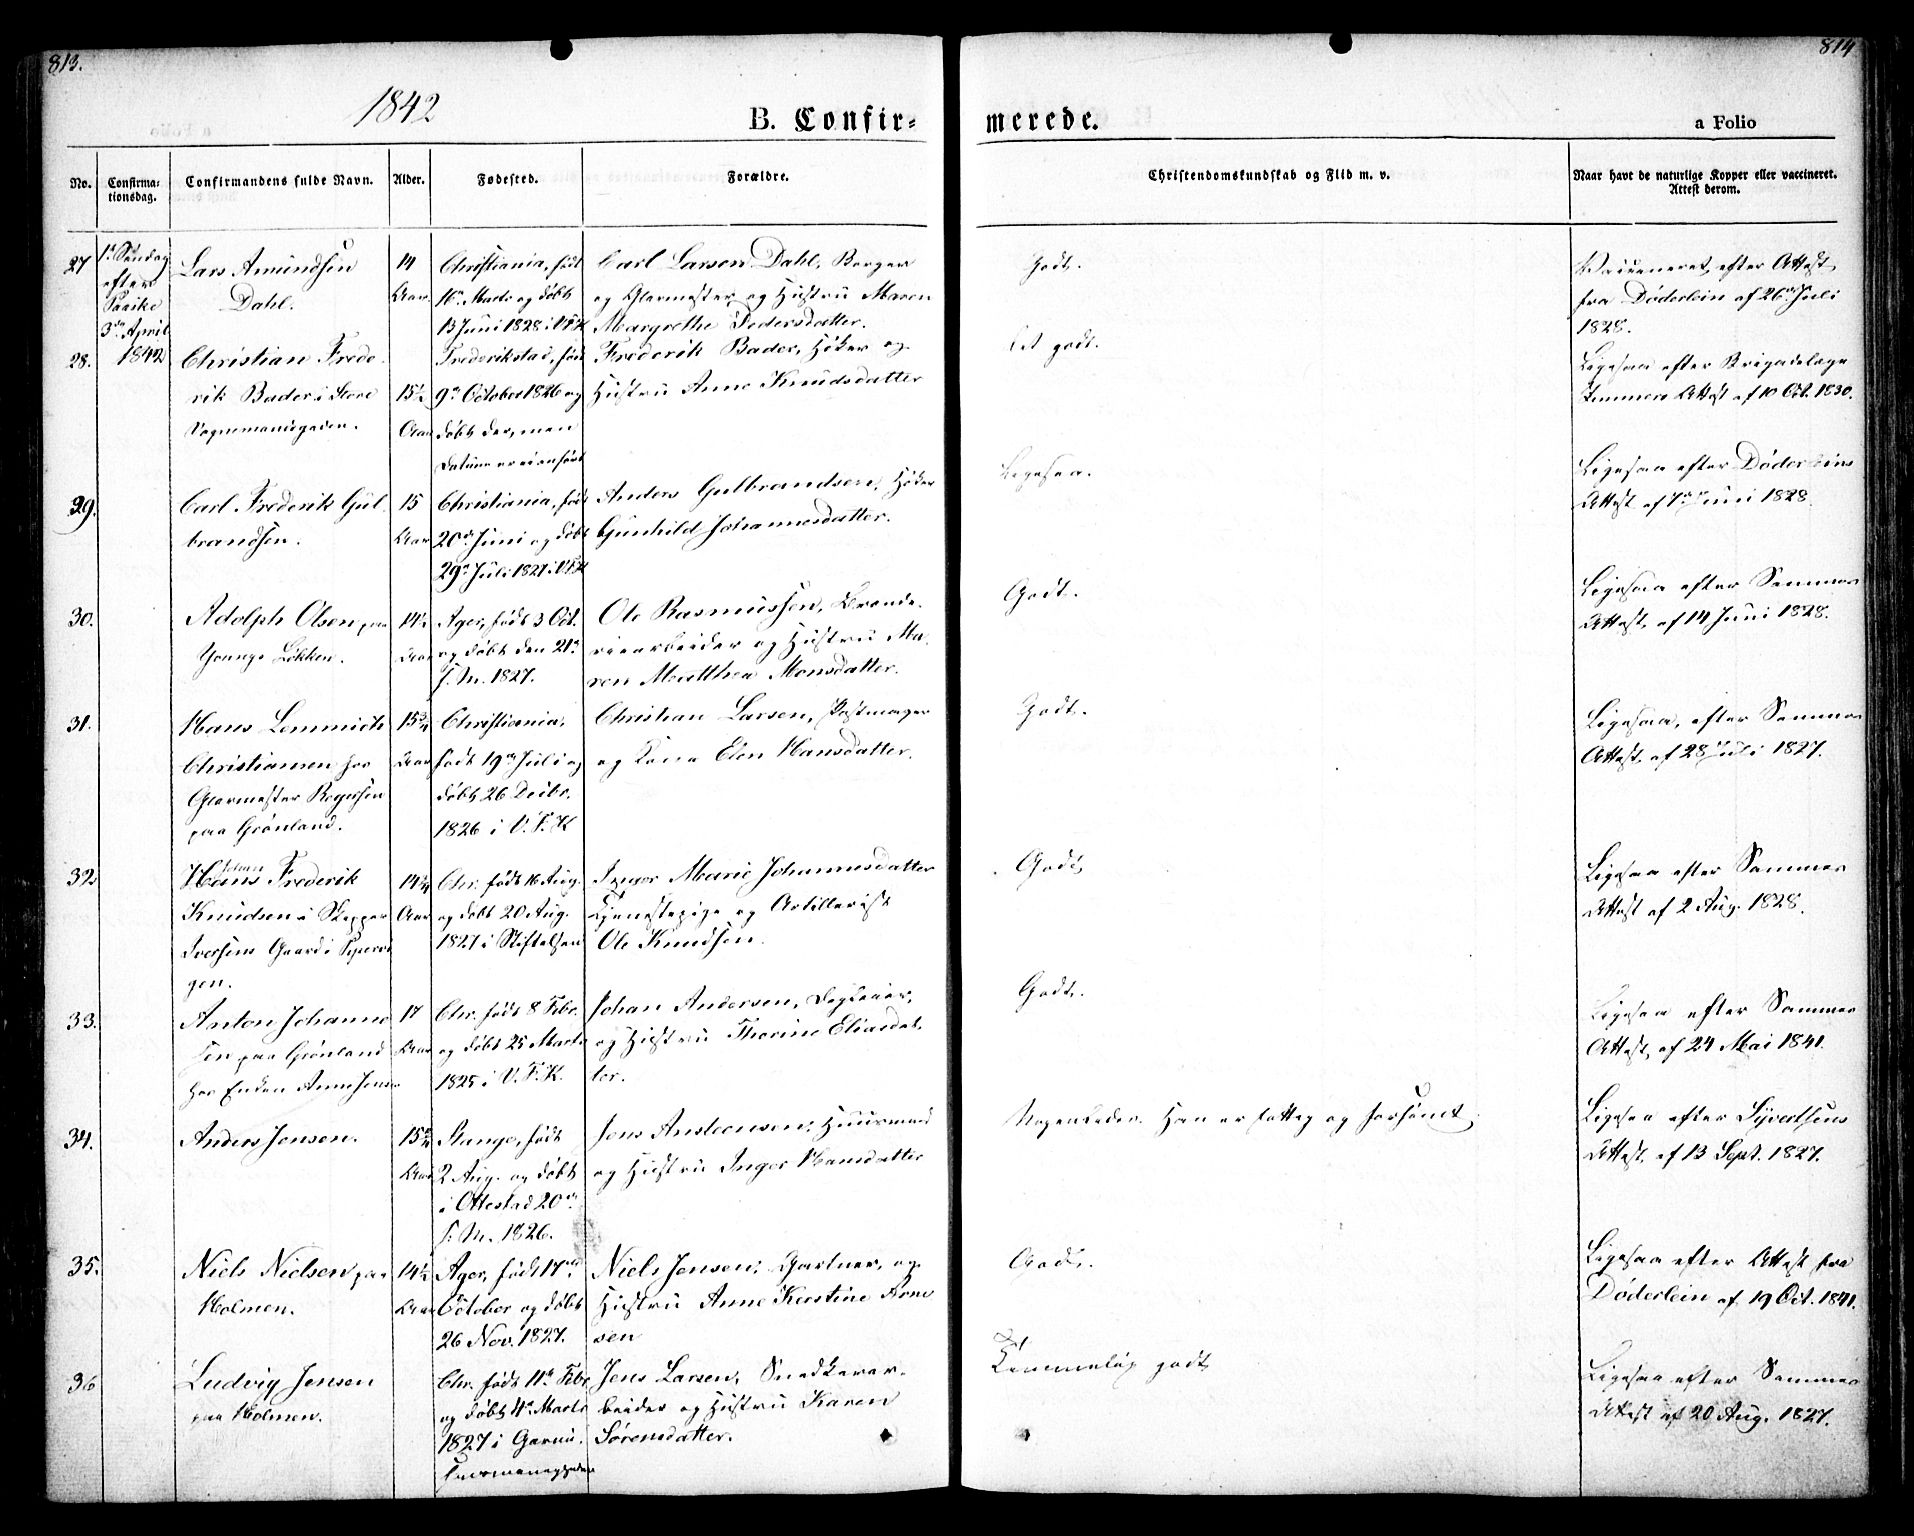 813.
814
1842
B. Confir=
merede.
a Folio
No.
Confirma=
tionsdag.
Confirmandens fulde Navn.
Alder.
Fødested.
Forældre.
Christendomskundskab og Flid m. v.
Naar havt de naturlige Kopper eller vaccineret.
Attest derom.
27
1ste Søndag
efter
Paaske
3die April
1842
Lars Amundsen
Dahl.
14
Aar
Christiania, født
16de Marts og døbt
13 Juni 1828 i V.F.K
Carl Larsen Dahl, Borger
og Glarmester og Hustru Maren
Margrethe Pedersdatter.
Godt.
Vaccineret efter Attest
fra Døderlein af 26de Juli
1828.
28.
Christian Frede
rik Bader i Store
Vognmandsgaden.
15½
Aar
Frederikstad, født
9de October 1826 og
døbt der, men
Datum er ei anført
Frederik Bader, Høker og
Hustru Anne Knudsdatter
Et godt.
Ligesaa efter Brigadelæge
Attest af 10 Oct. 1830.
29.
Carl Frederik Gul
brandsen.
15
Aar
Christiania, født
20de Juni og døbt
29de Juli 1827 i V.F.K
Anders Gulbrandsen, Høker
Gunhild Johannesdatter.
Ligesaa.
Ligesaa efter Døderleins
Attest af 7de Juni 1828.
30.
Adolph Olsen paa
Youngs Løkken.
14½
Aar
Ager, født 3 Oct.
og døbt den 21de
s. M. 1827.
Ole Rasmussen, Brænde-
riearbeider og Hustru Ma-
ren Matthea Monsdatter.
Godt.
Ligesaa efter Sammes
Attest, af 14 Juni 1828.
31.
Hans Lemmich
Christiansen hos
Glarmester Rogersen
paa Grønland.
15¾
Aar
Christiania,
født 19de Juli og
døbt 26 Decbr.
1826 i V. F. K
Christian Larsen, Postmager
og Kone Elen Hansdatter.
Godt.
Ligesaa, efter Sammes
Attest, af 28 Juli 1827.
32
Johan
Hans Frederik
Knudsen i Skipper
Iversens Gaard i Pipervi
gen.
14¼
Aar
Chr. født 16 Aug.
og døbt 20 Aug.
1827 i Stiftelsen
Inger Marie Johannesdatter
Tjenestepige og Artillerist
Ole Knudsen.
Godt
Ligesaa efter Sammes
Attest af 2 Aug. 1828.
33.
Anton Johanne
sen paa Grønland
hos Enken Anne Jens
17
Aar
Chr. født 8 Febr.
og døbt 25 Marts
1825 i V. F. K.
Johan Andersen, Dagleier,
og Hustru Thorine Eliasdat-
ter.
Godt.
Ligesaa efter Sammes
Attest, af 24 Mai 1841.
34.
Anders Jensen.
15¾
Aar
Stange, født
2 Aug. og døbt
i Ottestad 20de
s. M. 1826.
Jens Anstensen, Huusmand
og Hustru Inger Hansdatter
Nogenledes. Han er fattig og forsømt
Ligesaa efter Syvertsens
Attest, af 13 Sept. 1827.
35.
Niels Nielsen paa
Holmen.
14½
Aar
Ager, født 17de
October og døbt
26 Nov. 1827.
Niels Jensen, Gartner, og
Hustru Anne Kerstine Arne
sen
Godt.
Ligesaa efter Attest fra
Døderlein af 19 Oct. 1841.
36
Ludvig Jensen
paa Holmen.
Chr. født 11te Febr.
og døbt 4de Marts
1827 i Garni-
sonsmenigheden
Jens Larsen, Snedkerar-
beider og Hustru Karen
Sørensdatter.
Temmelig godt
Ligesaa efter Sammes
Attest af 20 Aug. 1827.